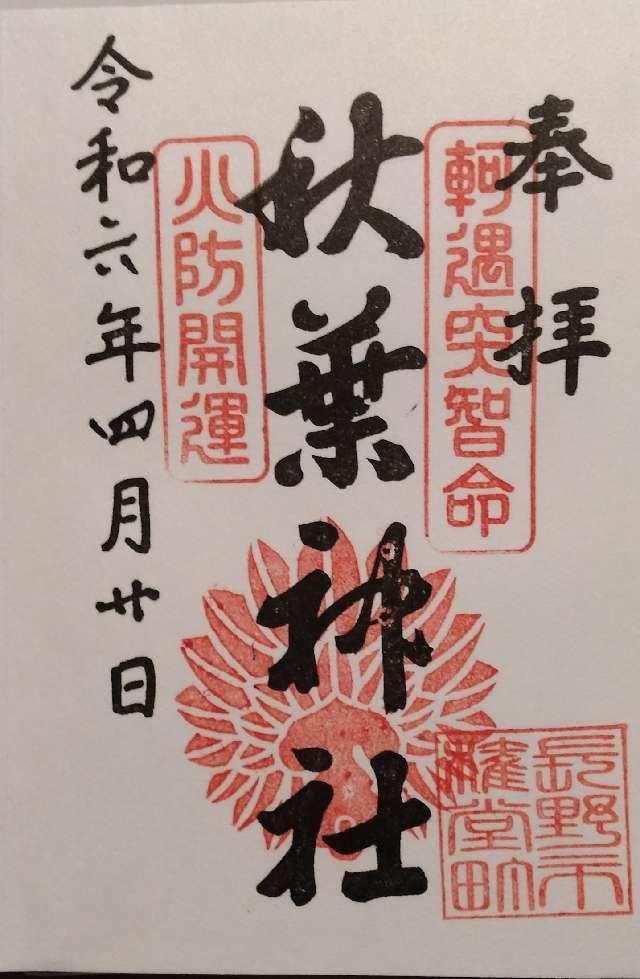 奉拝
軻遇突智命
秋葉神社
火防開運
令和六年四月廿日
長野市
権堂町